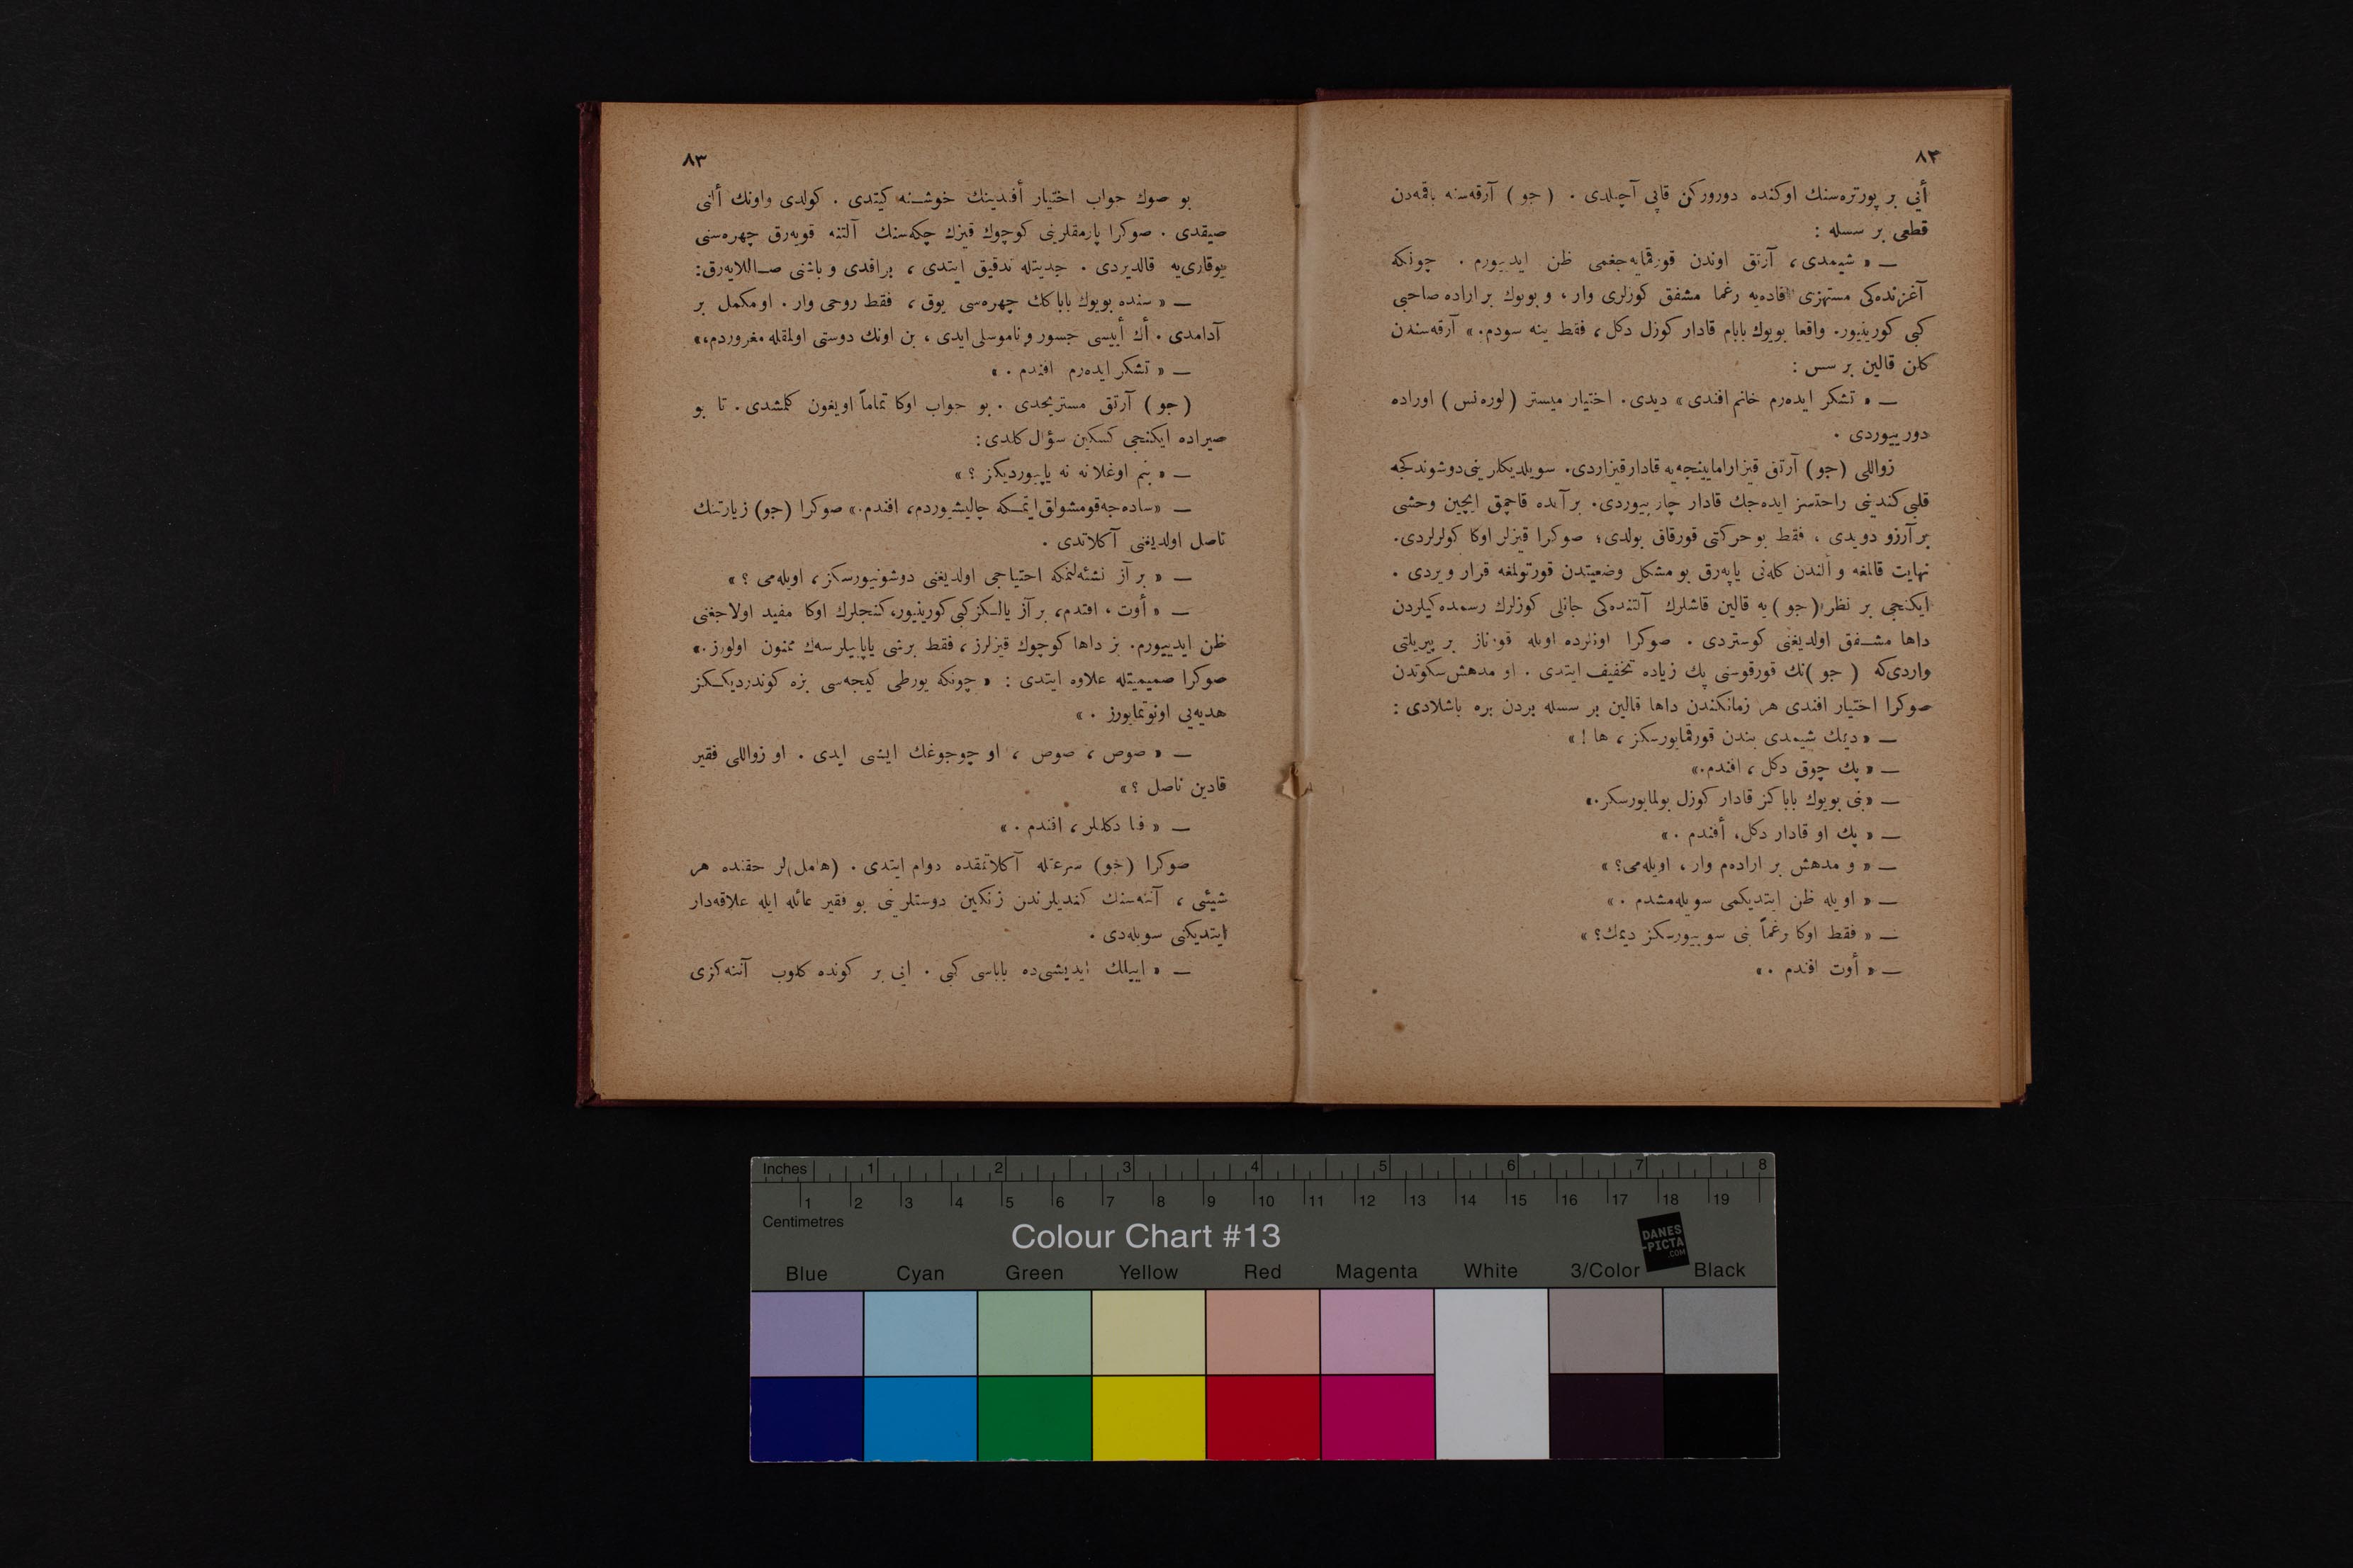 ٨٢
أيی بر پورتره‌سنك اوكنده دوروركن قاپی آچيلدی . ( جو ) آرقه‌سنه باقمه‌دن
قطعی بر سسله :
— « شيمدی، آرتق اوندن قورقمايه‌جغمی ظن ايدييورم . چونكه
آغزنده‌كی مستهزی افاده‌يه رغما مشفق كوزلری وار ، و بويوك بر اراده صاحبی
كبی كورينيور. واقعا بويوك بابام قادار كوزل دكل ، فقط ينه سودم. » آرقه‌سندن
كلن قالين بر سس :
— « تشكر ايده‌رم خانم افندی » ديدی. اختيار ميستر ( لوره‌نس ) اوراده
دورييوردی .
زواللی (جو) آرتق قيزارامايينجه‌يه قادار قيزاردی. سويلديكلرينی دوشوندكجه
قلبی كندينی راحتسز ايده‌جك قادار چارپييوردی. بر آنده قاچمق ايچين وحشی
بر آرزو دويدی ، فقط بو حركتی قورقاق بولدی؛ صوكرا قيزلر اوكا كولرلردی.
نهايت قالمغه و ألندن كله‌نی ياپه‌رق بو مشكل وضعيتدن قورتولمغه قرار ويردی .
ايكنجی بر نظر ( جو ) يه قالين قاشلرك آلتنده‌كی جانلی كوزلرك رسمده‌كيلردن
داها مشفق اولديغنی كوستردی . صوكرا اونلرده اويله قورناز بر پيريلتی
واردی‌كه ( جو )نك قورقوسنی پك زياده تخفيف ايتدی . او مدهش سكوتدن
صوكرا اختيار افندی هر زمانكندن داها قالين بر سسله بردن بره باشلادی :
— « ديمك شيمدی بندن قورقمايورسكز ، ها ! »
— « پك چوق دكل ، افندم.»
— « بنی بويوك باباكز قادار كوزل بولمايورسكز.»
— « پك او قادار دكل، أفندم . »
— « و مدهش بر اراده‌م وار ، اويله‌می؟ »
— « اويله ظن ايتديكمی سويله‌مشدم . »
— « فقط اوكا رغماً بنی سوييورسكز ديمك؟ »
— « أوت افندم . »
٨٣
بو صوك جواب اختيار أفندينك خوشنه كيتدی . كولدی واونك ألنی
صيقدی . صوكرا پارمقلرينی كوچوك قيزك چكه‌سنك آلتنه قويه‌رق چهره‌سنی
يوقاری‌يه قالديردی . جديتله تدقيق ايتدی ، براقدی و باشنی صاللايه‌رق:
— « سنده بويوك باباكك چهره‌سی يوق ، فقط روحی وار . او مكمل بر
آدامدی . أك أييسی جسور و ناموسلی ايدی ، بن اونك دوستی اولمقله مغروردم. »
— « تشكر ايده‌رم افندم . »
( جو ) آرتق مستريحدی . بو جواب اوكا تماماً اويغون كلمشدی . تا بو
صيراده ايكنجی كسكين سؤال كلدی :
— « بنم اوغلانه نه ياپييورديكز ؟ »
— « ساده‌جه قومشولق ايتمكه چاليشيوردم، افندم.» صوكرا (جو) زيارتنك
ناصل اولديغنی آكلاتدی .
— « بر آز نشئه‌لنمكه احتياجی اولديغنی دوشونيورسكز ، اويله‌می ؟ »
— « أوت ، افندم، بر آز يالكز كبی كورينيور، كنجلرك اوكا مفيد اولاجغنی
ظن ايدييورم. بز داها كوچوك قيزلرز ، فقط برشی ياپابيلرسه‌ك ممنون اولورز.»
صوكرا صميميتله علاوه ايتدی : « چونكه يورطی كيجه‌سی بزه كوندرديككز
هديه‌يی اونوتمايورز . »
— « صوص ، صوص ، او چوجوغك ايشی ايدی . او زواللی فقير
قادين ناصل ؟ »
— « فنا دكللر ، افندم . »
صوكرا (جو) سرعتله آكلاتمقده دوام ايتدی . (هامل)لر حقنده هر
شيئی ، آننه‌سنك كنديلرندن زنكين دوستلرينی بو فقير عائله ايله علاقه‌دار
ايتديكنی سويله‌دی .
— « اييلك ايديشی‌ده باباسی كبی . ايی بر كونده كلوب آننه‌كزی
Inches 1 2 3 4 5 6 7 8
1 2 3 4 5 6 7 8 9 10 11 12 13 14 15 16 17 18 19
Centimetres
Colour Chart #13
DANES
-PICTA
.COM
Blue Cyan Green Yellow Red Magenta White 3/Color Black